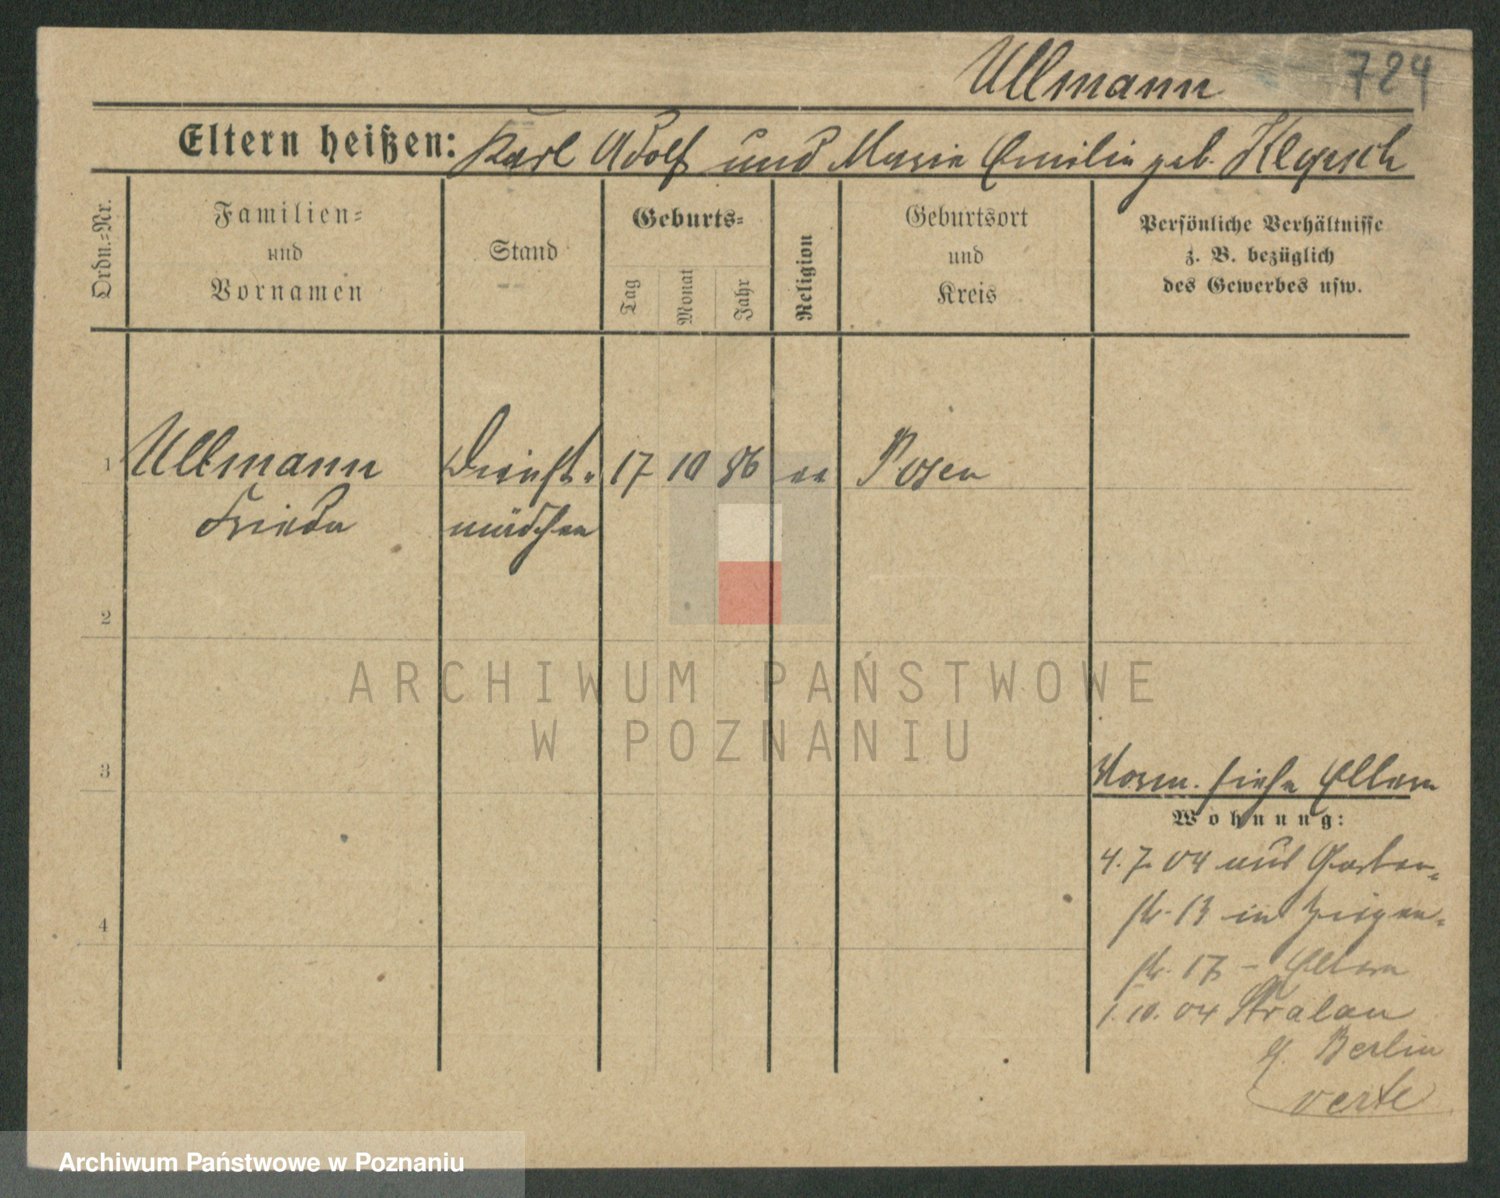 Ullmann 724
Eltern heißen: Karl Adolf und Marie Emilie geb.
Ordn.=Nr.
Familien=
und
Vornamen
Stand
Geburts=
Tag
Monat
Jahr
Religion
Geburtsort
und
Kreis
Persönliche Verhältnisse
z. B. bezüglich
des Gewerbes usw.
1 Ullmann Dienst= 17 10 86 ev Posen
Frieda mädchen
2
3
4
Vorm. siehe Eltern
Wohnung:
4. 7. 04 aus Garten=
str. 13 in Ziegen=
str. 17 – Eltern
1. 10. 04 Stralau
b. Berlin
verte
ARCHIWUM PAŃSTWOWE
W POZNANIU
Archiwum Państwowe w Poznaniu